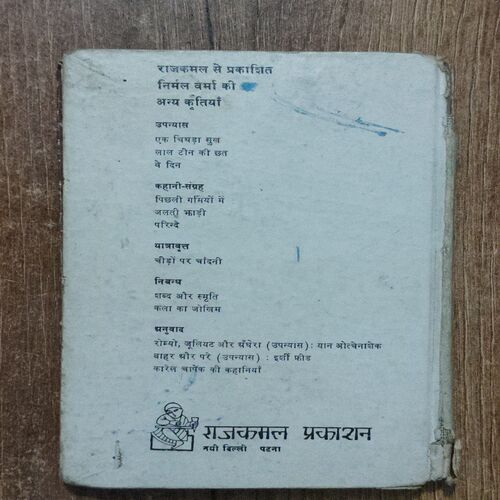 राजकमल से प्रकाशित
निर्मल वर्मा की
अन्य कृतियाँ
उपन्यास
एक चिथड़ा सुख
लाल टीन की छत
वे दिन
कहानी-संग्रह
पिछली गर्मियों में
जलती झाड़ी
परिन्दे
यात्रावृत्त
चीड़ों पर चाँदनी
निबन्ध
शब्द और स्मृति
कला का जोखिम
अनुवाद
रोम्यो, जूलियट और अँधेरा (उपन्यास) : यान ओत्चेनाशेक
बाहर और परे (उपन्यास) : इर्शी फ्रीड
कारेल चापेक की कहानियाँ
राजकमल प्रकाशन
नयी दिल्ली पटना